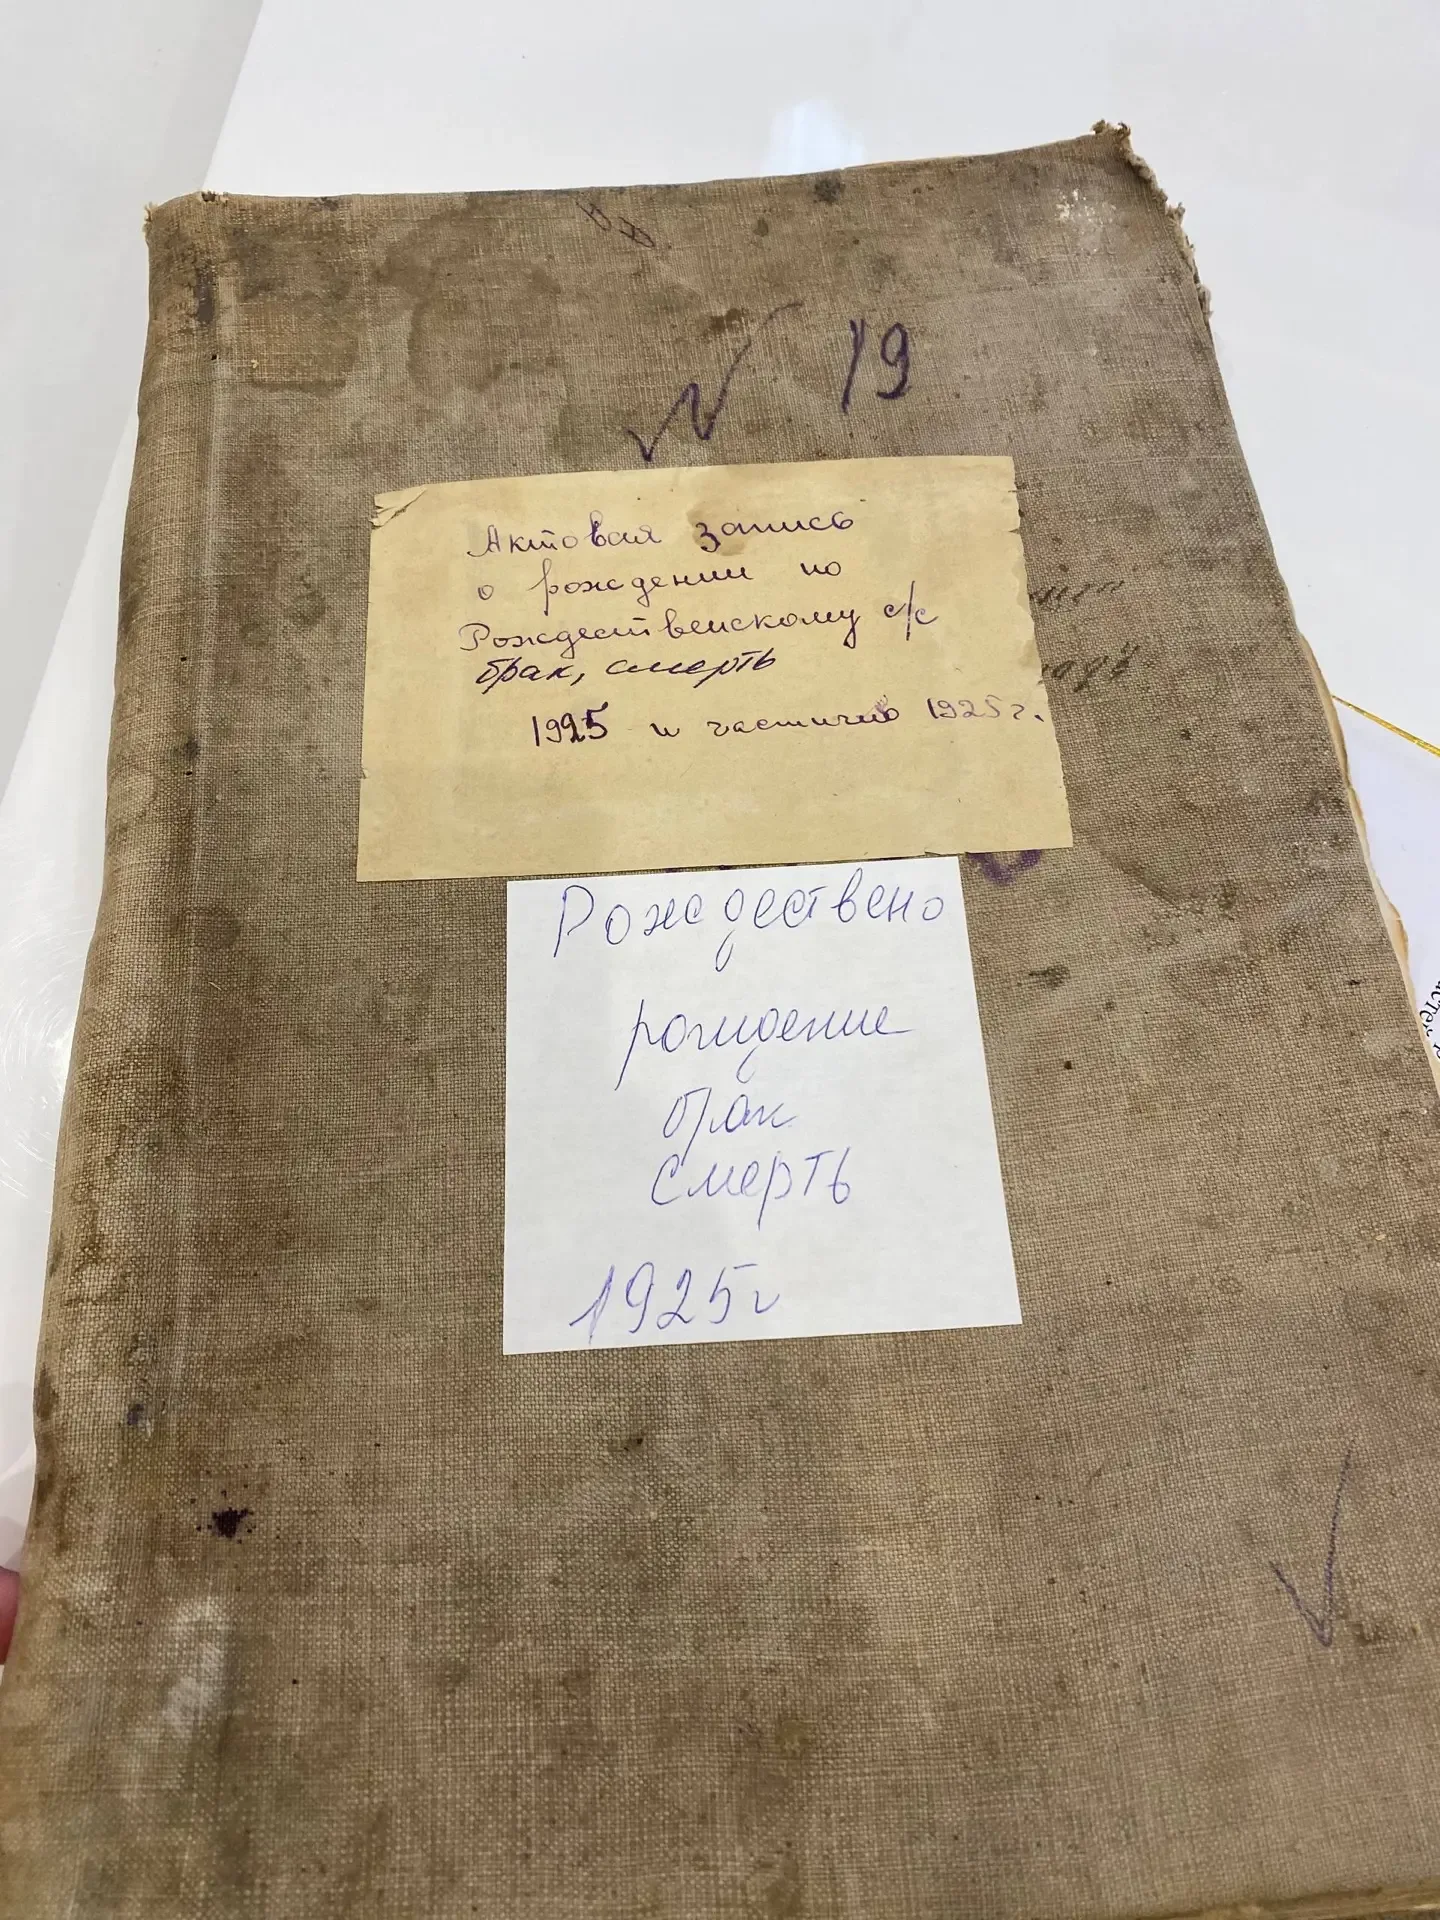 19
Актовая запись
о рождении по
Рождественскому с/с
брак, смерть
1925 и частично 1925г.
Рождествено
рождение
брак
смерть
1925г